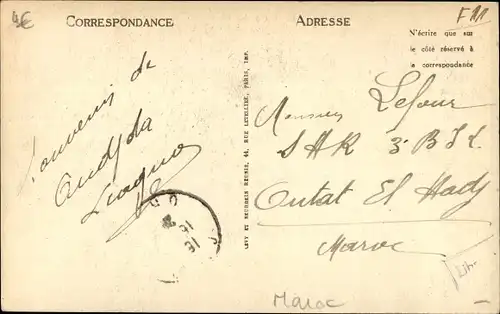 4€
CORRESPONDANCE
ADRESSE
FM
N'écrire que sur
le côté réservé à
la correspondance
Souvenir de
Oudjda
LEVY ET NEURDEIN REUNIS, 44, RUE LETELLIER, PARIS, IMP.
Monsieur Lefour
SHR 3e
Outat El Hadj
Maroc
Maroc